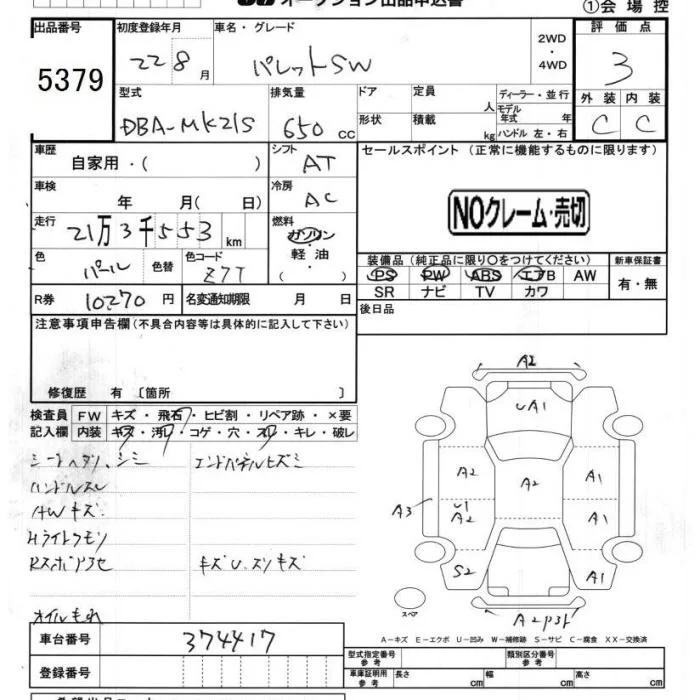 オークション出品申込書
①会場控
出品番号 5379
初度登録年月 22 8月
車名・グレード パレットSW
2WD・4WD
評価点 3
外装 C 内装 C
型式 DBA-MK21S
排気量 650 cc
ドア
形状
定員 人
積載 kg
ディーラー・並行
モデル年式 年
ハンドル 左・右
車歴 自家用・( )
シフト AT
セールスポイント(正常に機能するものに限ります)
車検 年 月( 日)
冷房 AC
NOクレーム・売切
走行 21万3千553 km
燃料 ガソリン・軽油・( )
色 パール 色替
色コード Z7T
装備品(純正品に限り○をつけてください)
PS PW ABS エアB AW
SR ナビ TV カワ
新車保証書 有・無
R券 10270円
名変通知期限 月 日
後日品
注意事項申告欄(不具合内容等は具体的に記入して下さい)
修復歴 有〔箇所 〕
検査員記入欄
FW キズ・飛石・ヒビ割・リペア跡・×要
内装 キズ・汚レ・コゲ・穴・スレ・キレ・破レ
シートヘタリ、シミ
エンドパネルヒズミ
ハンドルスレ
AWキズ
H.ライトクモリ
Rスポイラ色アセ
キズU.スリキズ
オイルもれ
A2
UA1
A2
A2
A1
A3
U1
A2
A1
S2
A1
スペア
A2P3ｷ
A-キズ E-エクボ U-凹み W-補修跡 S-サビ C-腐食 XX-交換済
車台番号 374417
型式指定番号 参考
類別区分番号 参考
登録番号
車庫証明用 参考 長さ cm 幅 cm 高さ cm